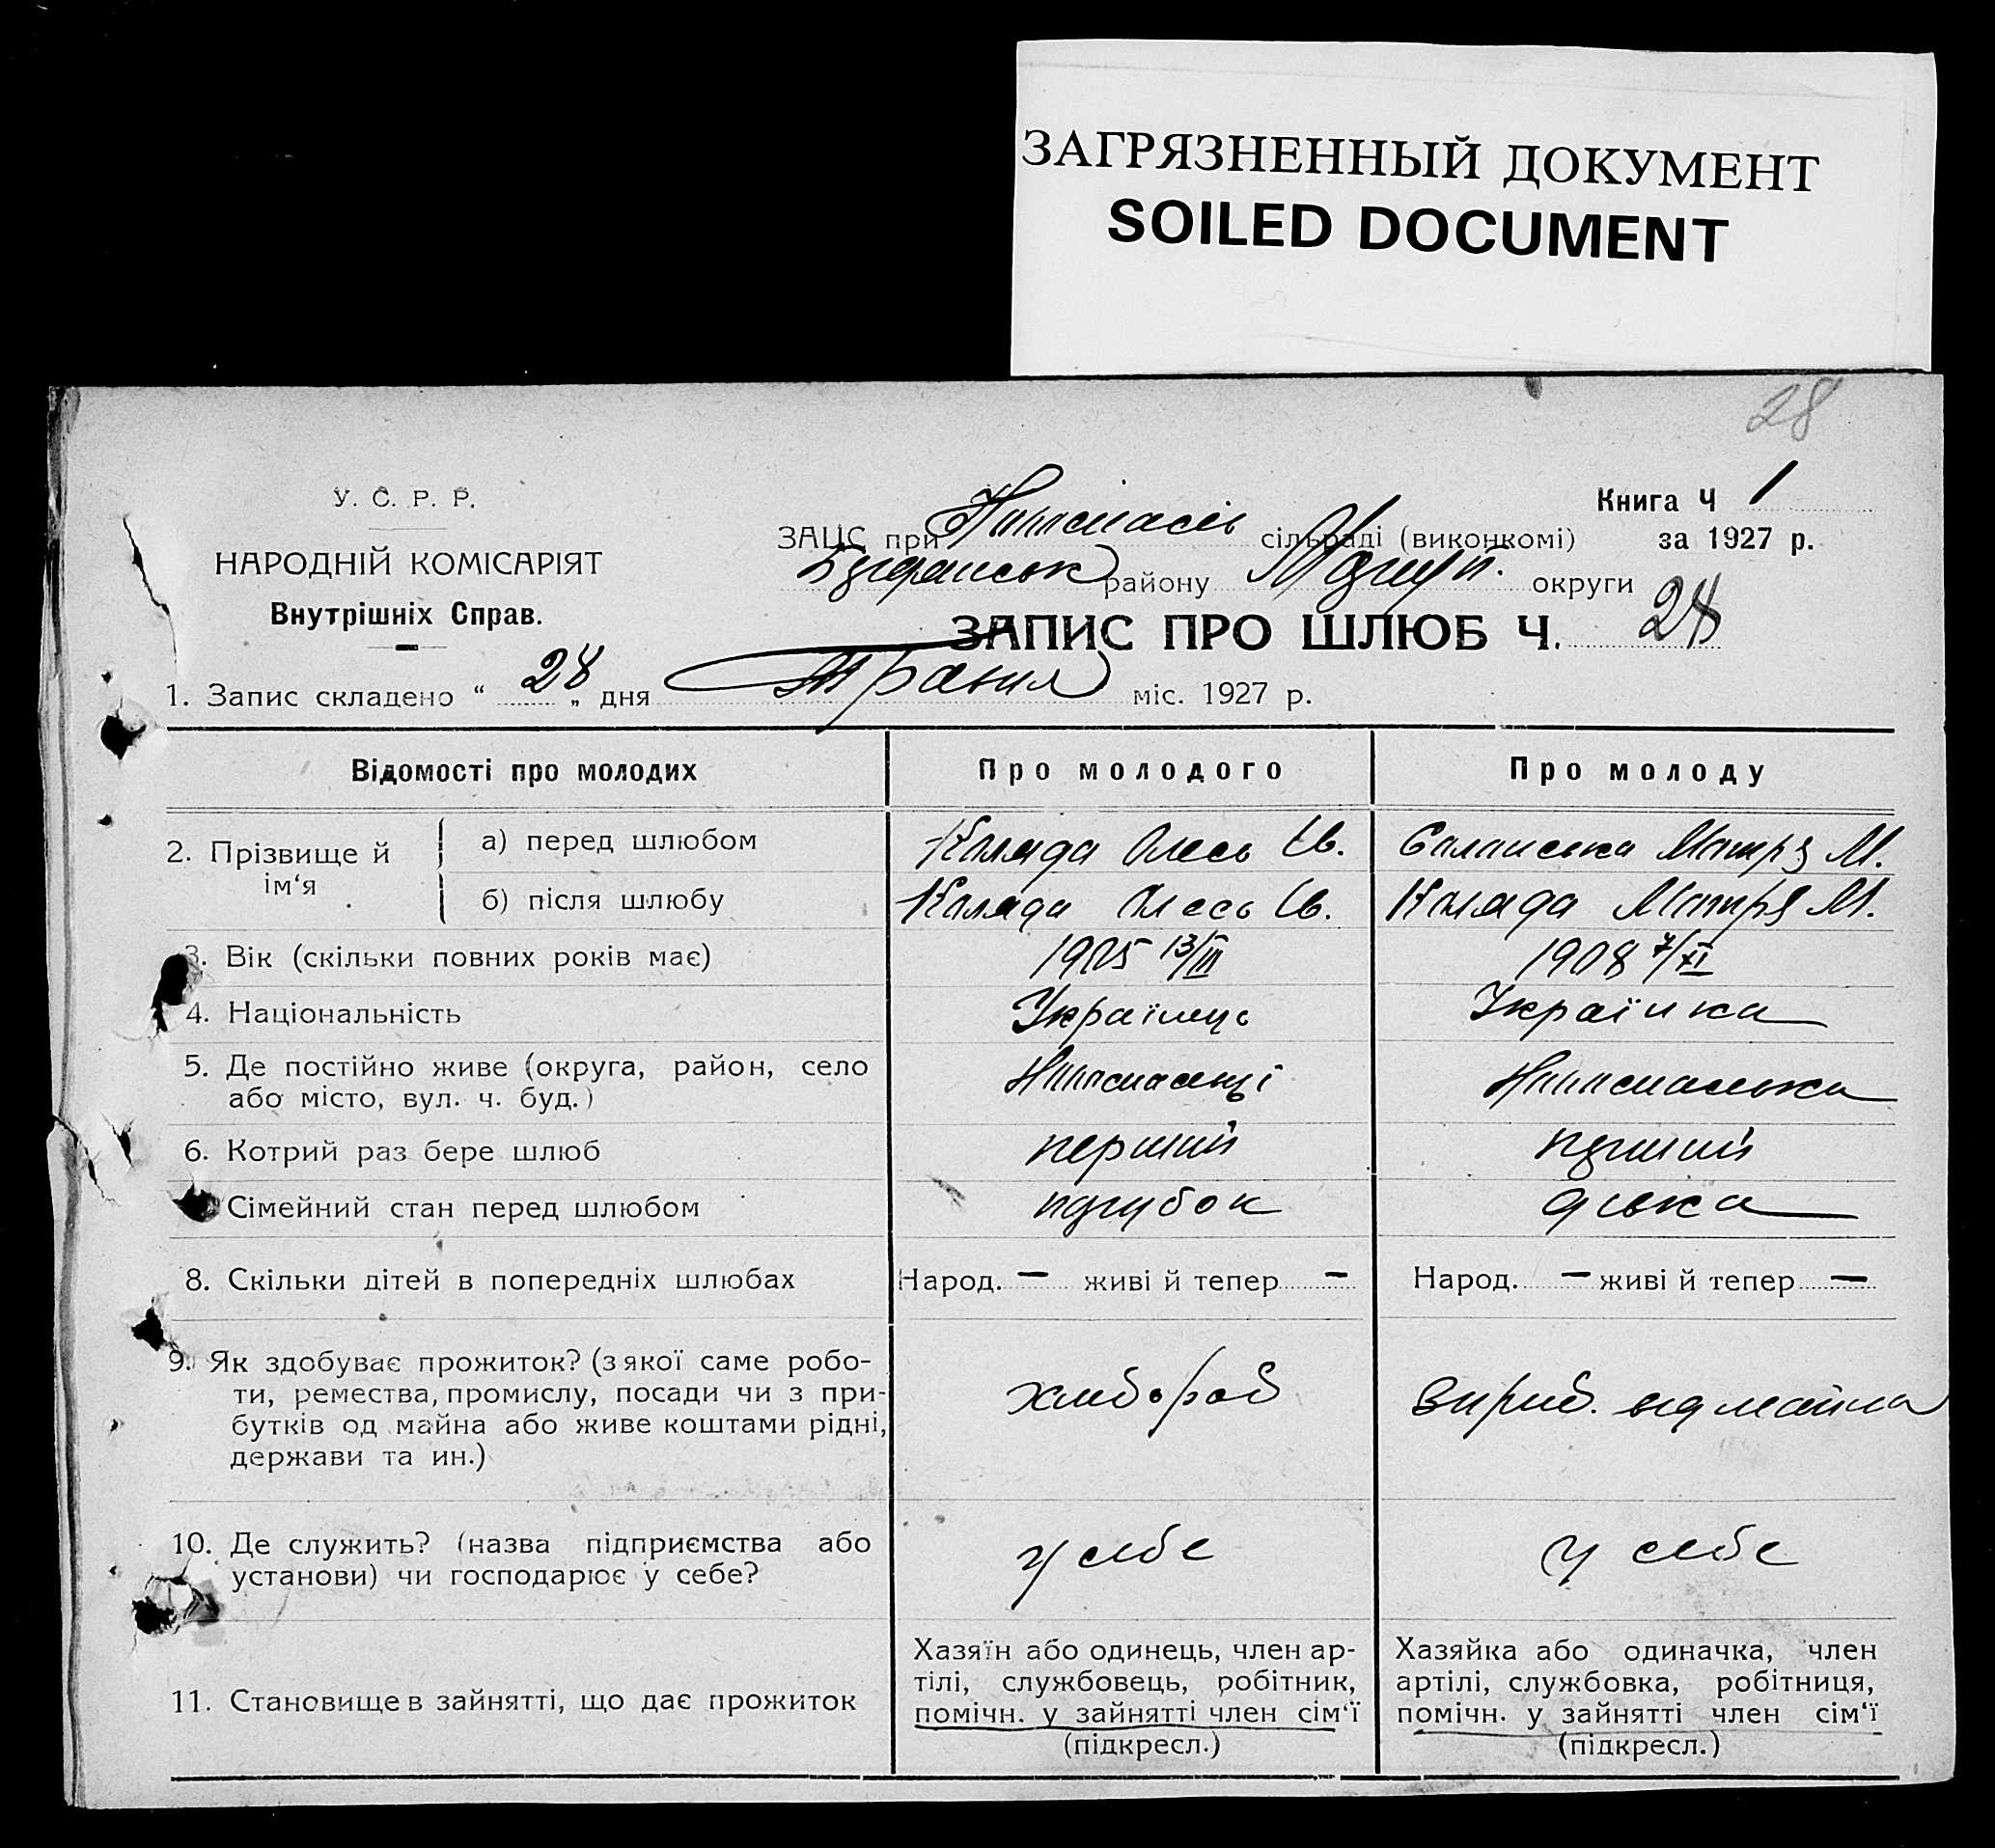 ЗАГРЯЗНЕННЫЙ ДОКУМЕНТ
SOILED DOCUMENT
28
У. С. Р. Р.
НАРОДНІЙ КОМІСАРІЯТ
Внутрішніх Справ.
Книга Ч 1
за 1927 р.
ЗАЦС при сільраді (виконкомі)
району округи
ЗАПИС ПРО ШЛЮБ Ч. 28
1. Запис складено “ 28 „ дня травня міс. 1927 р.
Відомості про молодих Про молодого Про молоду
2. Прізвище й ім‘я
а) перед шлюбом Коляда Олесь Ів. Матря М.
б) після шлюбу Коляда Олесь Ів. Коляда Матря М.
3. Вік (скільки повних років має) 1905 13/III 1908 7/XI
4. Національність Українець Українка
5. Де постійно живе (округа, район, село
або місто, вул. ч. буд.)
6. Котрий раз бере шлюб перший перший
Сімейний стан перед шлюбом парубок дівка
8. Скільки дітей в попередніх шлюбах Народ. — живі й тепер — Народ. — живі й тепер —
9. Як здобуває прожиток? (з якої саме робо-
ти, ремества, промислу, посади чи з при-
бутків од майна або живе коштами рідні,
держави та ин.)
хлібороб
від майна
10. Де служить? (назва підприємства або
установи) чи господарює у себе?
у себе
у себе
11. Становище в зайнятті, що дає прожиток
Хазяїн або одинець, член ар-
тілі, службовець, робітник,
помічн. у зайнятті член сім‘ї
(підкресл.)
Хазяйка або одиначка, член
артілі, службовка, робітниця,
помічн. у зайнятті член сім‘ї
(підкресл.)